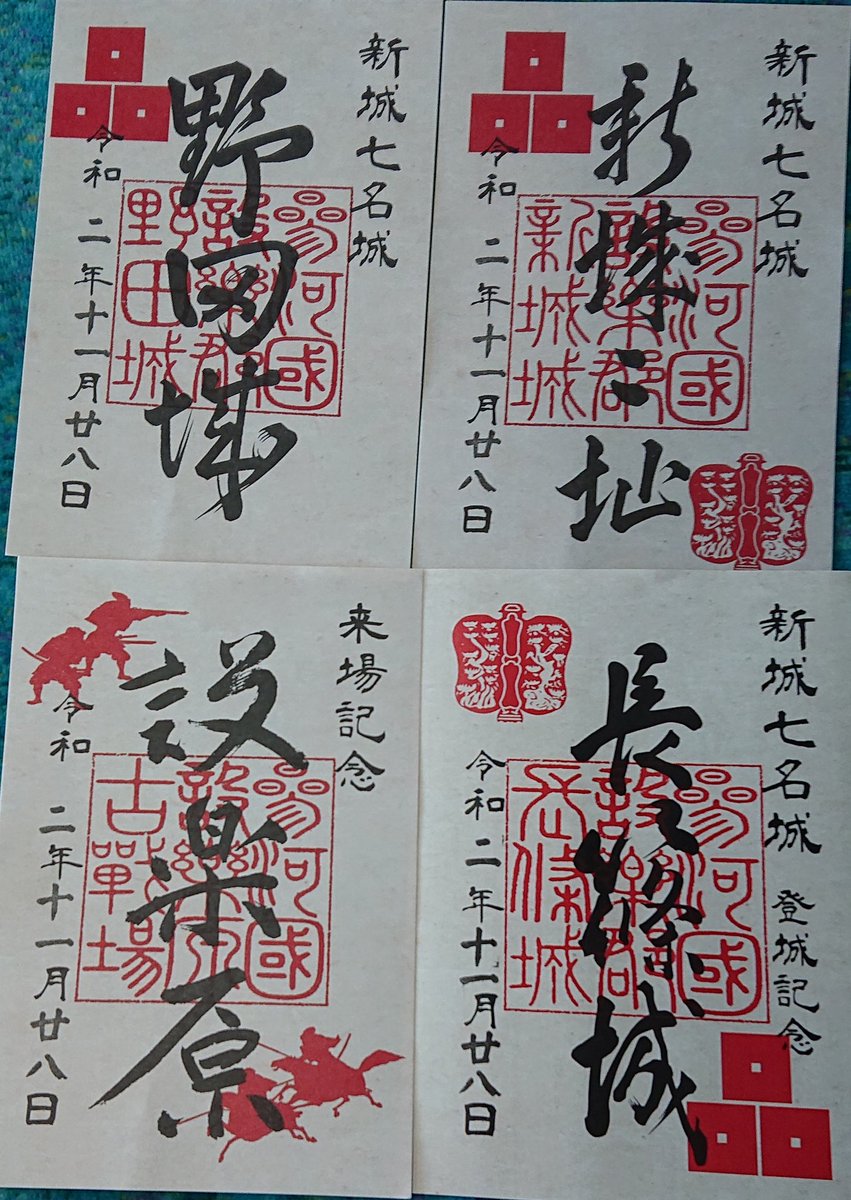 新城七名城
野田城
参河國
設樂郡
野田城
令和二年十一月廿八日
新城七名城
新城々址
参河國
設樂郡
新城城
令和二年十一月廿八日
来場記念
設楽原
参河國
設樂原
古戰場
令和二年十一月廿八日
新城七名城 登城記念
長篠城
参河國
設樂郡
長篠城
令和二年十一月廿八日